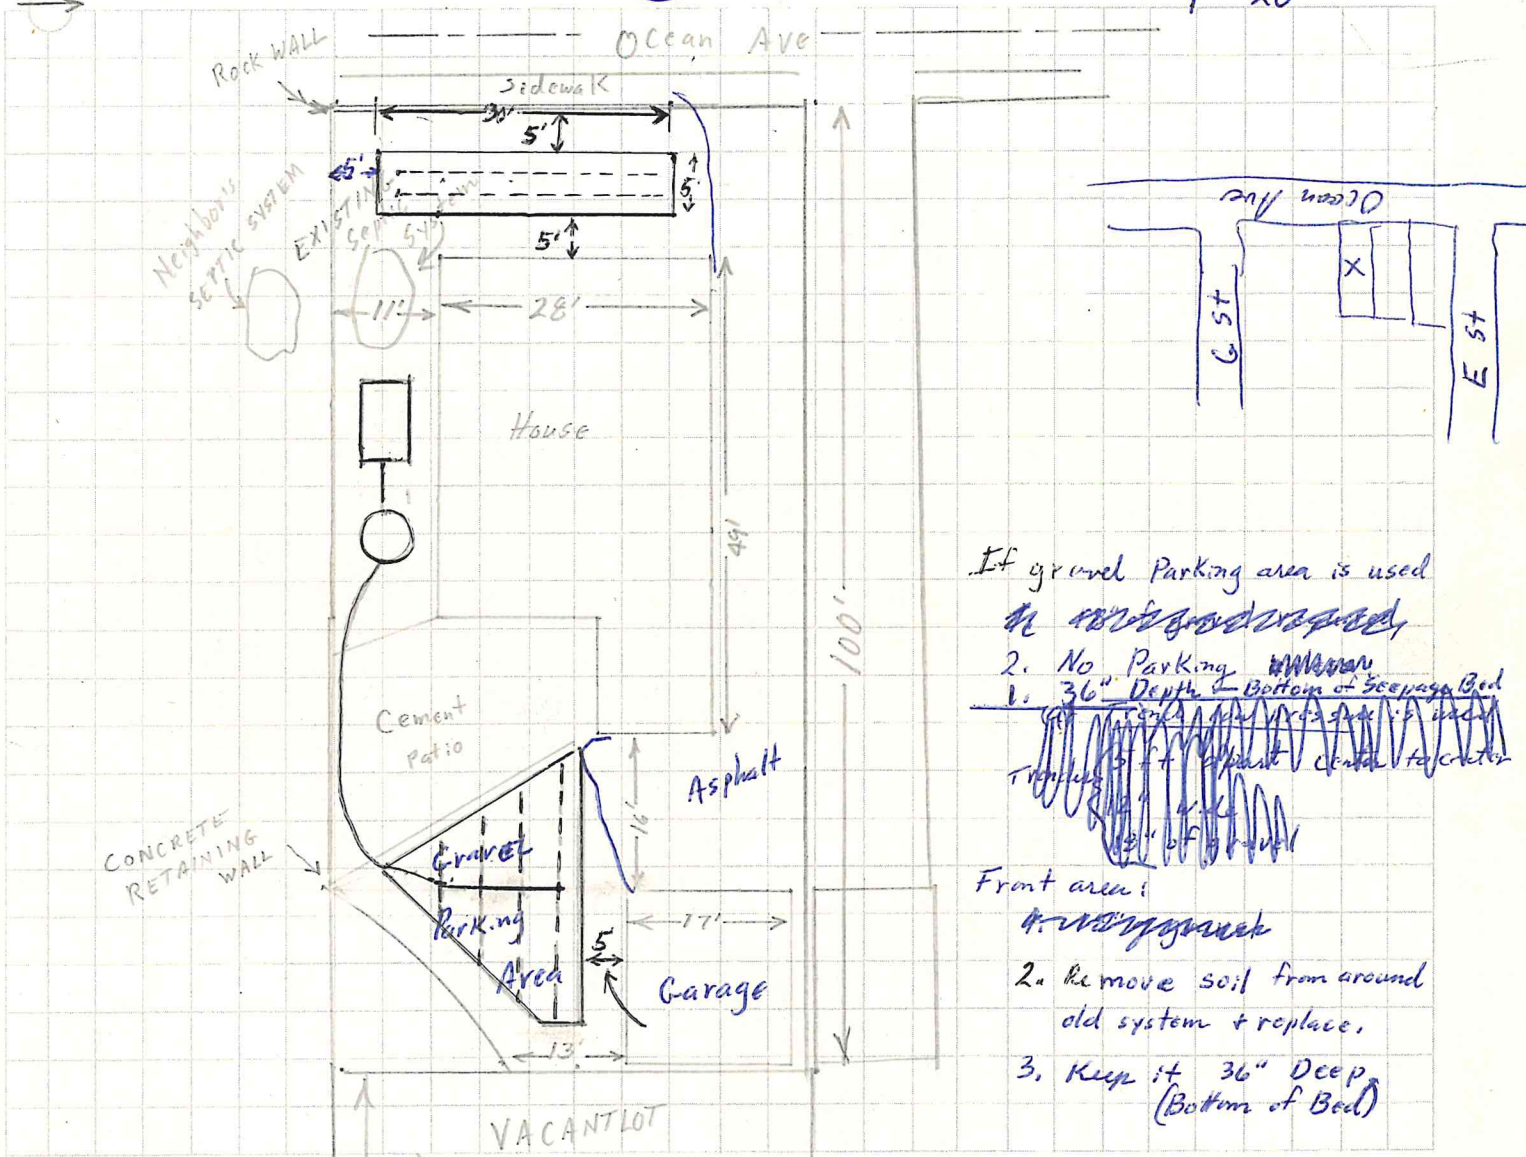 20
Ocean Ave
Rock WALL
Sidewalk
30'
5'
5'
5'
5'
Neighbor's
SEPTIC SYSTEM
EXISTING
Septic
System
11'
28'
House
49'
100'
Cement
Patio
CONCRETE
RETAINING
WALL
Gravel
Parking
Area
16'
Asphalt
17'
5'
Garage
13'
VACANT LOT
Ocean
Ave
X
G St
E St
If gravel Parking area is used
2. No Parking
1. 36" Depth - Bottom of Seepage Bed
apart center to center
Front area:
2. Remove soil from around
old system + replace.
3. Keep it 36" Deep
(Bottom of Bed)